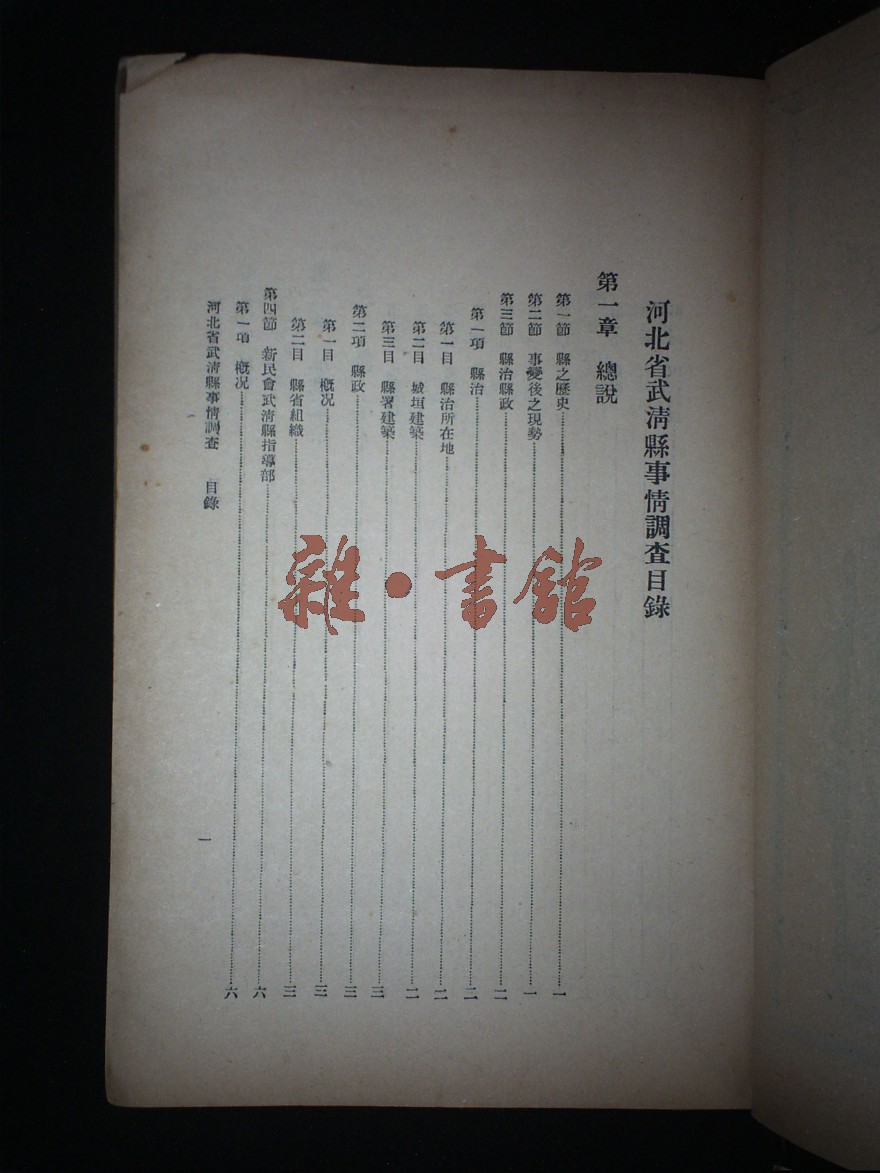 河北省武淸縣事情調查目錄
第一章 總說
第一節 縣之歷史……一
第二節 事變後之現勢……一
第三節 縣治縣政……二
第一項 縣治……二
第一目 縣治所在地……二
第二目 城垣建築……二
第三目 縣署建築……三
第二項 縣政……三
第一目 概况……三
第二目 縣省組織……三
第四節 新民會武淸縣指導部……六
第一項 概况……六
河北省武淸縣事情調查 目錄
一
雜·書館